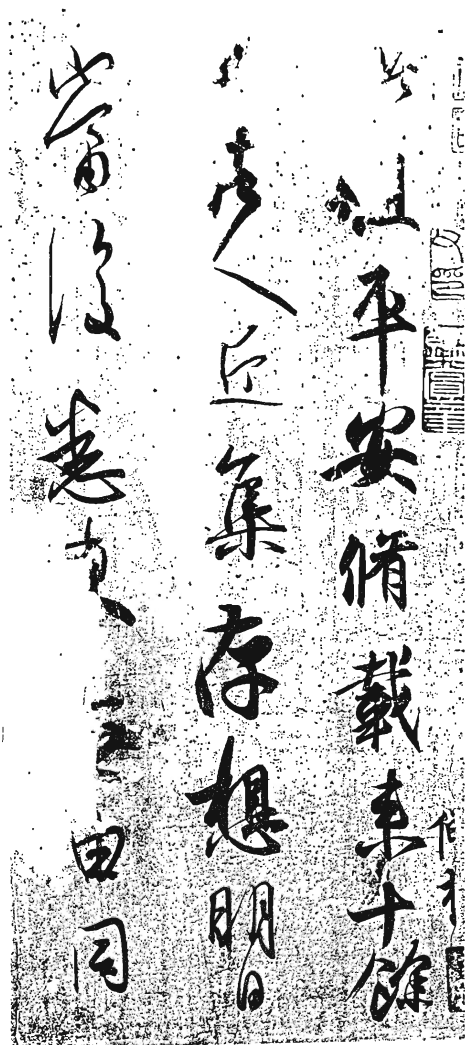 此粗平安脩載來十餘
日諸人近集存想明日
當復悉來無由同